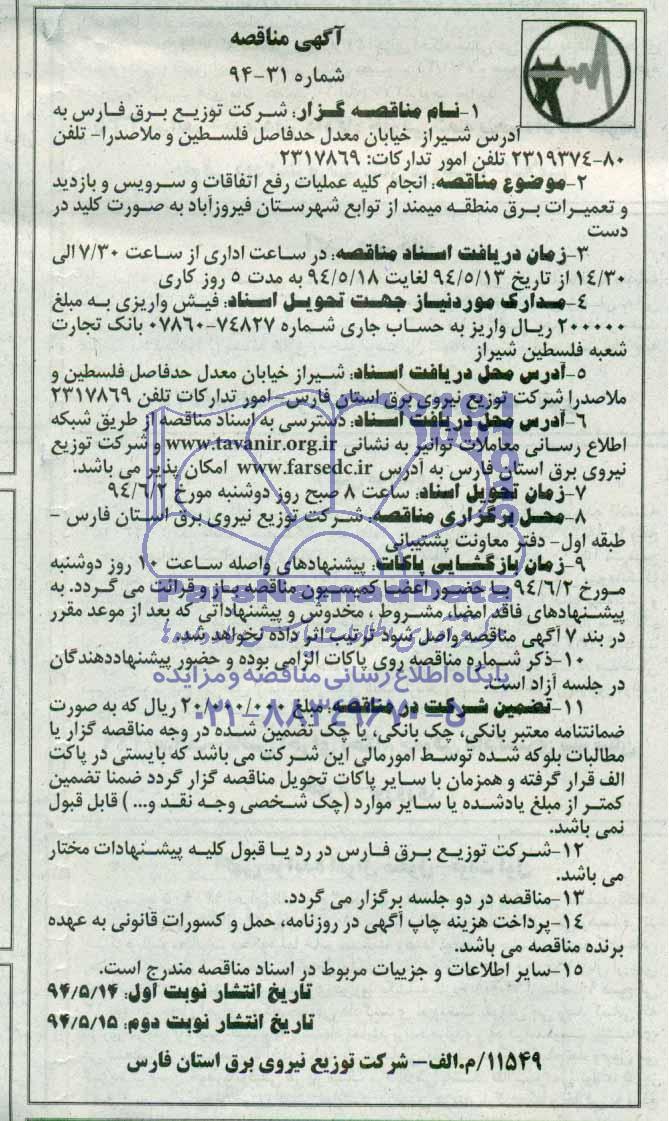 آگهی مناقصه
شماره ۳۱-۹۴
۱-نام مناقصه گزار: شرکت توزیع برق فارس به
آدرس شیراز خیابان معدل حدفاصل فلسطین و ملاصدرا- تلفن
۸۰-۲۳۱۹۳۷۴ تلفن امور تدارکات: ۲۳۱۷۸۶۹
۲-موضوع مناقصه: انجام کلیه عملیات رفع اتفاقات و سرویس و بازدید
و تعمیرات برق منطقه میمند از توابع شهرستان فیروزآباد به صورت کلید در
دست
۳-زمان دریافت اسناد مناقصه: در ساعت اداری از ساعت ۷/۳۰ الی
۱۴/۳۰ از تاریخ ۹۴/۵/۱۳ لغایت ۹۴/۵/۱۸ به مدت ۵ روز کاری
۴-مدارک موردنیاز جهت تحویل اسناد: فیش واریزی به مبلغ
۲۰۰۰۰۰ ریال واریز به حساب جاری شماره ۷۴۸۲۷-۰۷۸۶۰ بانک تجارت
شعبه فلسطین شیراز
۵-آدرس محل دریافت اسناد: شیراز خیابان معدل حدفاصل فلسطین و
ملاصدرا شرکت توزیع نیروی برق استان فارس- امور تدارکات تلفن ۲۳۱۷۸۶۹
۶-آدرس محل دریافت اسناد: دسترسی به اسناد مناقصه از طریق شبکه
اطلاع رسانی معاملات توانیر به نشانی www.tavanir.org.ir و شرکت توزیع
نیروی برق استان فارس به آدرس www.farsedc.ir امکان پذیر می باشد.
۷-زمان تحویل اسناد: ساعت ۸ صبح روز دوشنبه مورخ ۹۴/۶/۲
۸-محل برگزاری مناقصه: شرکت توزیع نیروی برق استان فارس -
طبقه اول- دفتر معاونت پشتیبانی
۹-زمان بازگشایی پاکات: پیشنهادهای واصله ساعت ۱۰ روز دوشنبه
مورخ ۹۴/۶/۲ با حضور اعضا کمیسیون مناقصه باز و قرائت می گردد. به
پیشنهادهای فاقد امضا، مشروط ، مخدوش و پیشنهاداتی که بعد از موعد مقرر
در بند ۷ آگهی مناقصه واصل شود ترتیب اثر داده نخواهد شد.
۱۰-ذکر شماره مناقصه روی پاکات الزامی بوده و حضور پیشنهاددهندگان
در جلسه آزاد است.
پایگاه اطلاع رسانی مناقصه و مزایده
۱۱-تضمین شرکت در مناقصه: مبلغ ۲۰/۰۰۰/۰۰۰ ریال که به صورت
۰۲۱-۸۸۳۴۹۶۷۰-۵
ضمانتنامه معتبر بانکی، چک بانکی، یا چک تضمین شده در وجه مناقصه گزار یا
مطالبات بلوکه شده توسط امورمالی این شرکت می باشد که بایستی در پاکت
الف قرار گرفته و همزمان با سایر پاکات تحویل مناقصه گزار گردد ضمنا تضمین
کمتر از مبلغ یادشده یا سایر موارد (چک شخصی وجه نقد و... ) قابل قبول
نمی باشد.
۱۲-شرکت توزیع برق فارس در رد یا قبول کلیه پیشنهادات مختار
می باشد.
۱۳-مناقصه در دو جلسه برگزار می گردد.
۱۴-پرداخت هزینه چاپ آگهی در روزنامه، حمل و کسورات قانونی به عهده
برنده مناقصه می باشد.
۱۵-سایر اطلاعات و جزییات مربوط در اسناد مناقصه مندرج است.
تاریخ انتشار نوبت اول: ۹۴/۵/۱۴
تاریخ انتشار نوبت دوم: ۹۴/۵/۱۵
۱۱۵۴۹/م.الف- شرکت توزیع نیروی برق استان فارس